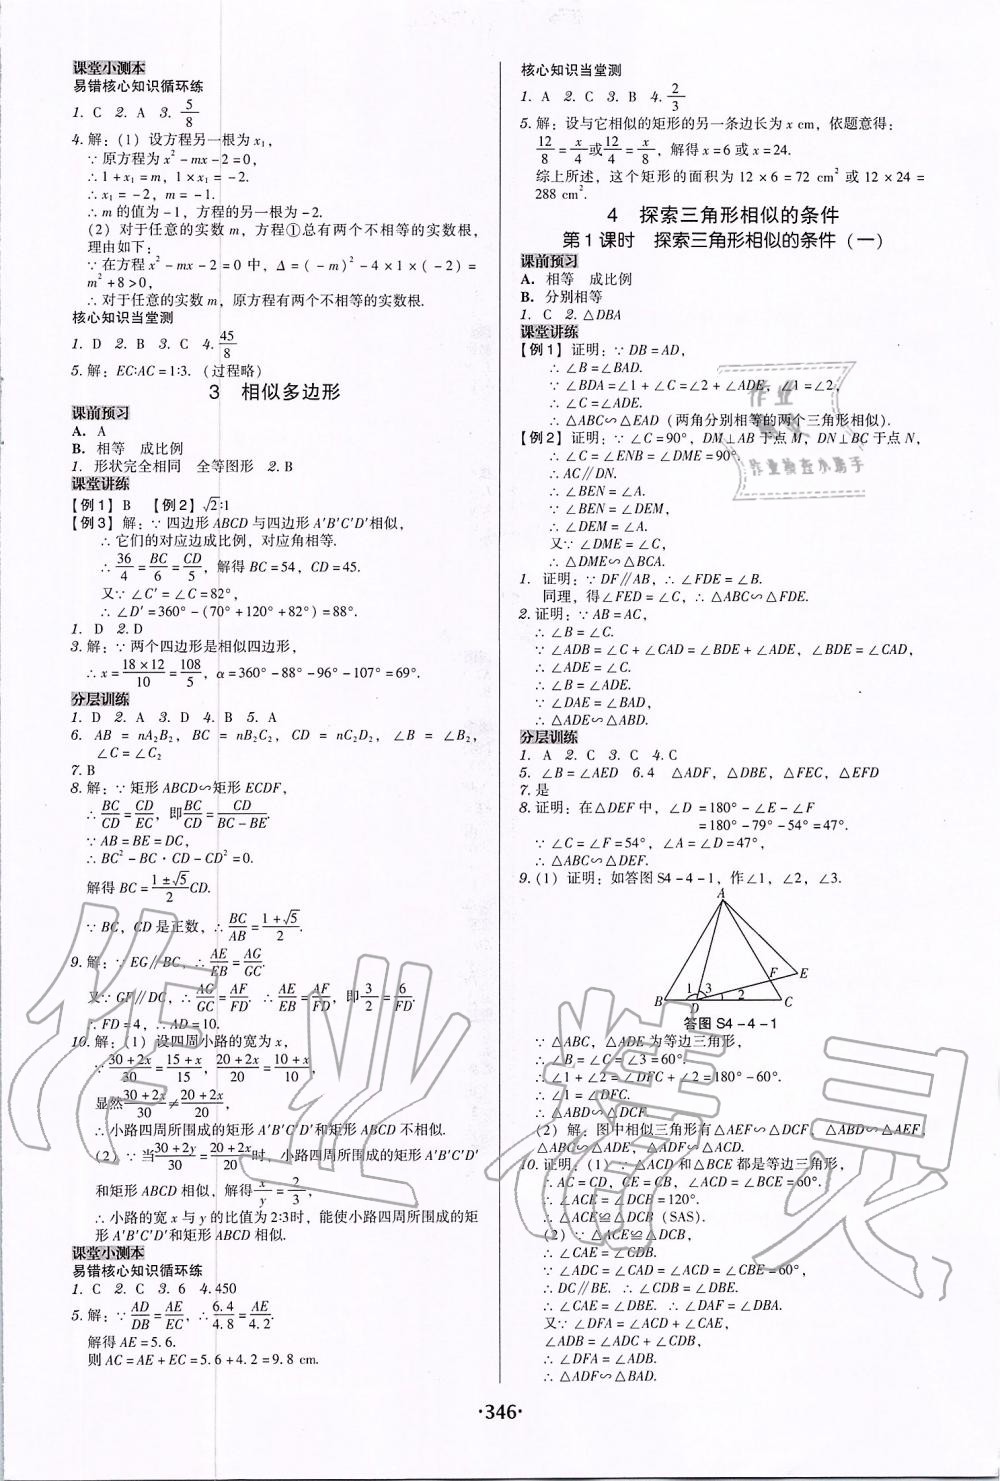 课堂小测本
易错核心知识循环练
1. C  2. A  3. 5/8
4. 解：(1) 设方程另一根为 x₁，
∵ 原方程为 x² - mx - 2 = 0，
∴ 1 + x₁ = m，1 × x₁ = -2.
∴ x₁ = -2，m = -1.
∴ m 的值为 -1，方程的另一根为 -2.
(2) 对于任意的实数 m，方程①总有两个不相等的实数根，
理由如下：
∵ 在方程 x² - mx - 2 = 0 中，Δ = (-m)² - 4 × 1 × (-2) =
m² + 8 > 0，
∴ 对于任意的实数 m，原方程有两个不相等的实数根.
核心知识当堂测
1. D  2. B  3. C  4. 45/8
5. 解：EC∶AC = 1∶3.（过程略）
3 相似多边形
课前预习
A. A
B. 相等 成比例
1. 形状完全相同 全等图形 2. B
课堂讲练
【例1】B 【例2】√2∶1
【例3】解：∵ 四边形 ABCD 与四边形 A'B'C'D'相似，
∴ 它们的对应边成比例，对应角相等.
∴ 36/4 = BC/6 = CD/5，解得 BC = 54，CD = 45.
又∵ ∠C' = ∠C = 82°，
∴ ∠D' = 360° - (70° + 120° + 82°) = 88°.
1. D  2. D
3. 解：∵ 两个四边形是相似四边形，
∴ x = 18×12/10 = 108/5，α = 360° - 88° - 96° - 107° = 69°.
分层训练
1. D  2. A  3. D  4. B  5. A
6. AB = nA₂B₂，BC = nB₂C₂，CD = nC₂D₂，∠B = ∠B₂，
∠C = ∠C₂
7. B
8. 解：∵ 矩形 ABCD∽矩形 ECDF，
∴ BC/CD = CD/EC，即 BC/CD = CD/(BC - BE).
∵ AB = BE = DC，
∴ BC² - BC · CD - CD² = 0.
解得 BC = (1±√5)/2 CD.
∵ BC，CD 是正数，∴ BC/AB = (1+√5)/2.
9. 解：∵ EG∥BC，∴ AE/EB = AG/GC.
又∵ GF∥DC，∴ AG/GC = AF/FD. ∴ AE/EB = AF/FD，即 3/2 = 6/FD.
∴ FD = 4，∴ AD = 10.
10. 解：(1) 设四周小路的宽为 x，
∵ (30+2x)/30 = (15+x)/15，(20+2x)/20 = (10+x)/10，
显然 (30+2x)/30 ≠ (20+2x)/20，
∴ 小路四周所围成的矩形 A'B'C'D'和矩形 ABCD 不相似.
(2) ∵ 当 (30+2y)/30 = (20+2x)/20 时，小路四周所围成的矩形 A'B'C'D'
和矩形 ABCD 相似，解得 x/y = 2/3，
∴ 小路的宽 x 与 y 的比值为 2∶3时，能使小路四周所围成的矩
形 A'B'C'D'和矩形 ABCD 相似.
课堂小测本
易错核心知识循环练
1. C  2. C  3. 6  4. 450
5. 解：∵ AD/DB = AE/EC，∴ 6.4/4.8 = AE/4.2.
解得 AE = 5.6.
则 AC = AE + EC = 5.6 + 4.2 = 9.8 cm.
核心知识当堂测
1. A  2. C  3. B  4. 2/3
5. 解：设与它相似的矩形的另一条边长为 x cm，依题意得：
12/8 = x/4 或 12/4 = x/8，解得 x = 6 或 x = 24.
综上所述，这个矩形的面积为 12 × 6 = 72 cm² 或 12 × 24 =
288 cm².
4 探索三角形相似的条件
第1课时 探索三角形相似的条件（一）
课前预习
A. 相等 成比例
B. 分别相等
1. C  2. △DBA
课堂讲练
【例1】证明：∵ DB = AD，
∴ ∠B = ∠BAD.
∵ ∠BDA = ∠1 + ∠C = ∠2 + ∠ADE，∠1 = ∠2，
∴ ∠C = ∠ADE.
∴ △ABC∽△EAD（两角分别相等的两个三角形相似）.
【例2】证明：∵ ∠C = 90°，DM⊥AB 于点 M，DN⊥BC 于点 N，
∴ ∠C = ∠ENB = ∠DME = 90°.
∴ AC∥DN.
∴ ∠BEN = ∠A.
∵ ∠BEN = ∠DEM，
∴ ∠DEM = ∠A.
又∵ ∠DME = ∠C，
∴ △DME∽△BCA.
1. 证明：∵ DF∥AB，∴ ∠FDE = ∠B.
同理，得∠FED = ∠C，∴ △ABC∽△FDE.
2. 证明：∵ AB = AC，
∴ ∠B = ∠C.
∵ ∠ADB = ∠C + ∠CAD = ∠BDE + ∠ADE，∠BDE = ∠CAD，
∴ ∠ADE = ∠C.
∴ ∠B = ∠ADE.
∵ ∠DAE = ∠BAD，
∴ △ADE∽△ABD.
分层训练
1. A  2. C  3. C  4. C
5. ∠B = ∠AED  6. 4 △ADF，△DBE，△FEC，△EFD
7. 是
8. 证明：在△DEF 中，∠D = 180° - ∠E - ∠F
= 180° - 79° - 54° = 47°.
∵ ∠C = ∠F = 54°，∠A = ∠D = 47°，
∴ △ABC∽△DEF.
9. (1) 证明：如答图 S4-4-1，作∠1，∠2，∠3.
A
F
E
1 3
2
B
D
C
答图 S4-4-1
∵ △ABC，△ADE 为等边三角形，
∴ ∠B = ∠C = ∠3 = 60°.
∴ ∠1 + ∠2 = ∠DFC + ∠2 = 180° - 60°.
∴ ∠1 = ∠DFC.
∴ △ABD∽△DCF.
(2) 解：图中相似三角形有△AEF∽△DCF，△ABD∽△AEF，
△ABC∽△ADE，△ADF∽△ACD.
10. 证明：(1) ∵ △ACD 和△BCE 都是等边三角形，
∴ AC = CD，CE = CB，∠ACD = ∠BCE = 60°.
∴ ∠ACE = ∠DCB = 120°.
∴ △ACE≌△DCB（SAS）.
(2) ∵ △ACE≌△DCB，
∴ ∠CAE = ∠CDB.
∵ ∠ADC = ∠CAD = ∠ACD = ∠CBE = 60°，
∴ DC∥BE. ∴ ∠CDB = ∠DBE.
∴ ∠CAE = ∠DBE. ∴ ∠DAF = ∠DBA.
又∵ ∠DFA = ∠ACD + ∠CAE，
∠ADB = ∠ADC + ∠CDB，
∴ ∠DFA = ∠ADB.
∴ △ADF∽△BAD.
·346·
作业精灵
作业检查小助手